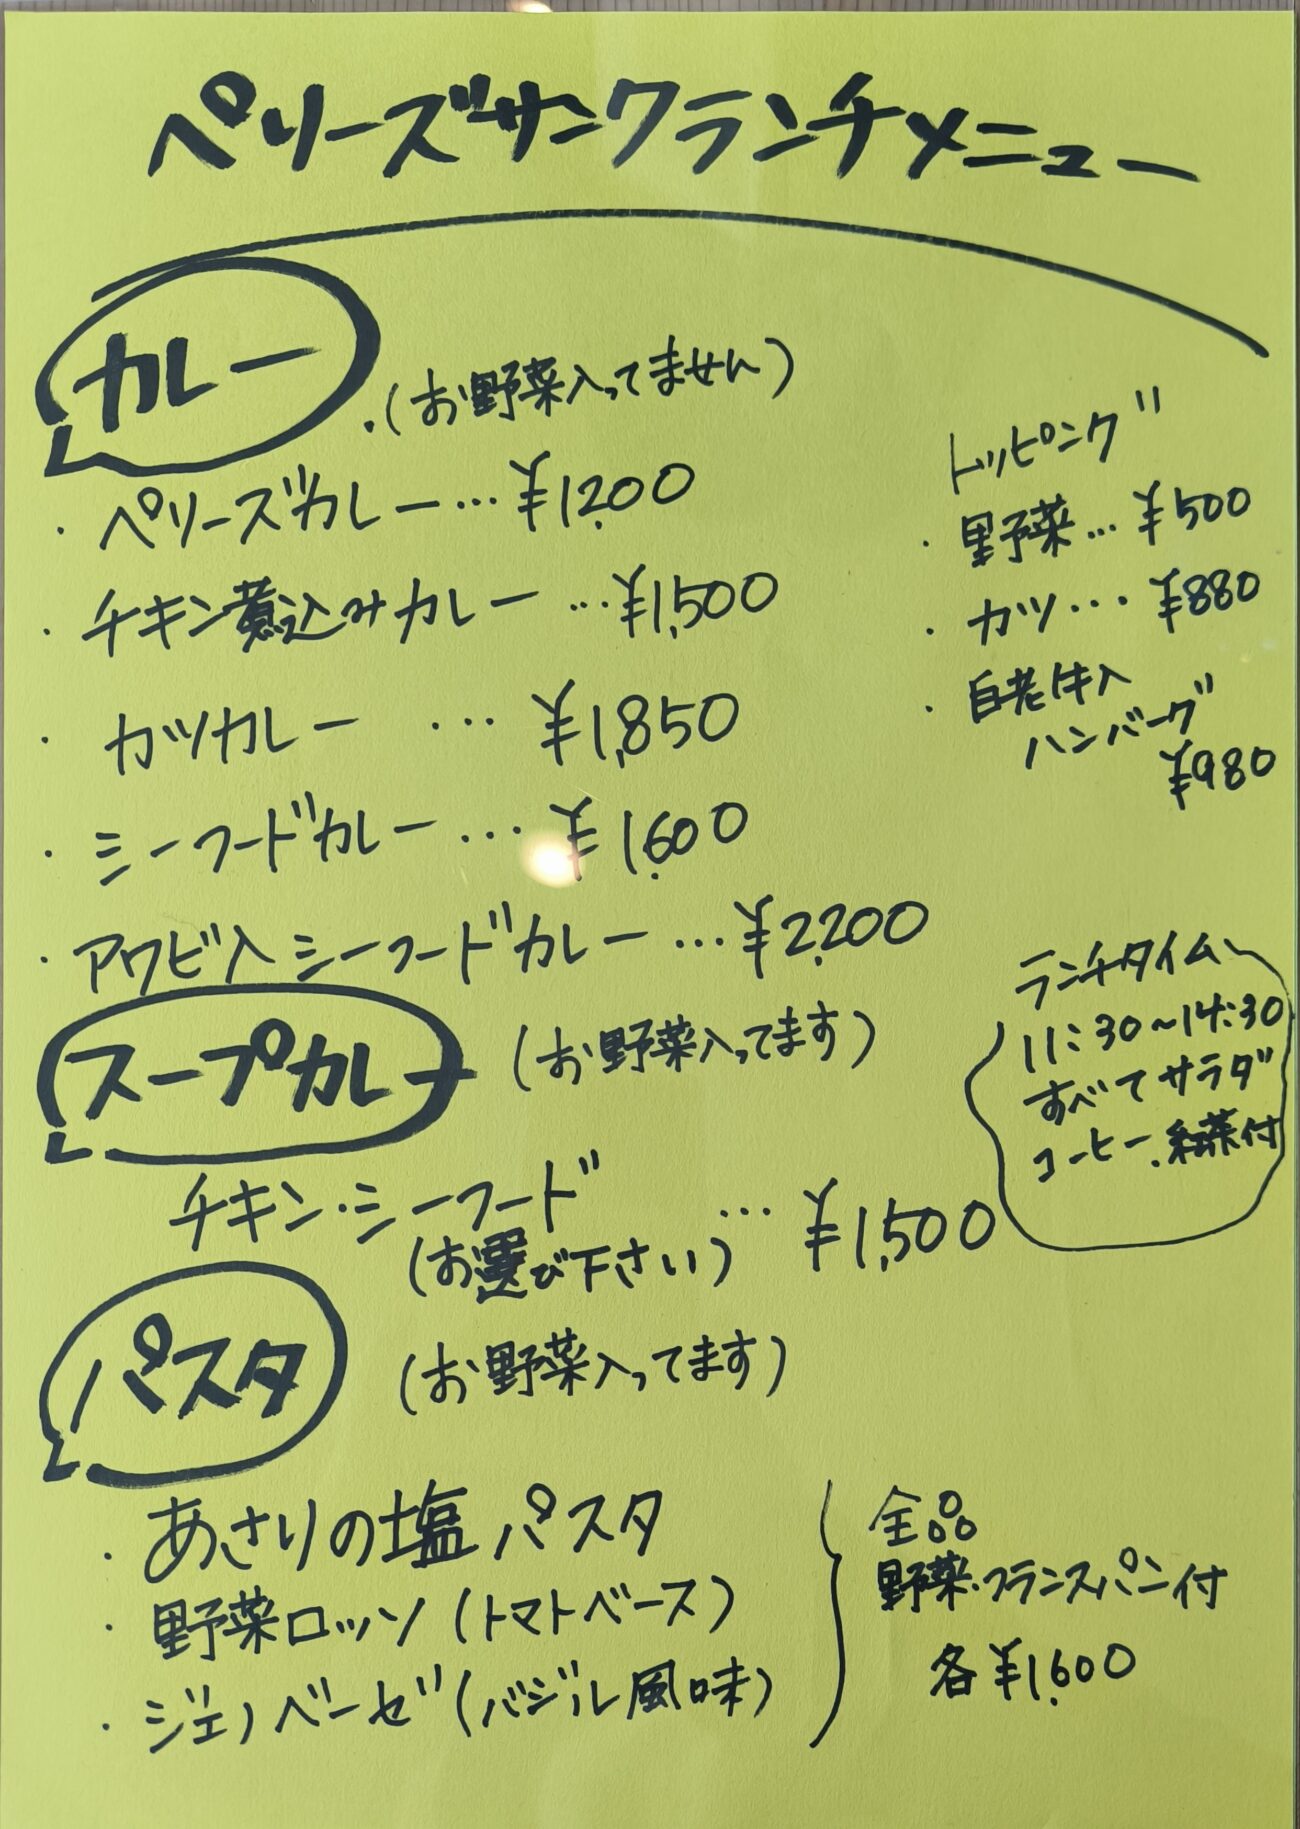 ペリーズサンクランチメニュー
カレー
・(お野菜入ってません)
・ペリーズカレー…¥1,200
・チキン煮込みカレー…¥1,500
・カツカレー…¥1,850
・シーフードカレー…¥1,600
・アワビ入シーフードカレー…¥2,200
トッピング
・野菜…¥500
・カツ…¥880
・白老牛入
ハンバーグ
¥980
ランチタイム
11:30~14:30
すべてサラダ
コーヒー.紅茶付
スープカレー
(お野菜入ってます)
チキン・シーフード
(お選び下さい)
…¥1,500
パスタ
(お野菜入ってます)
・あさりの塩パスタ
・野菜ロッソ(トマトベース)
・ジェノベーゼ(バジル風味)
全品
野菜・フランスパン付
各¥1,600